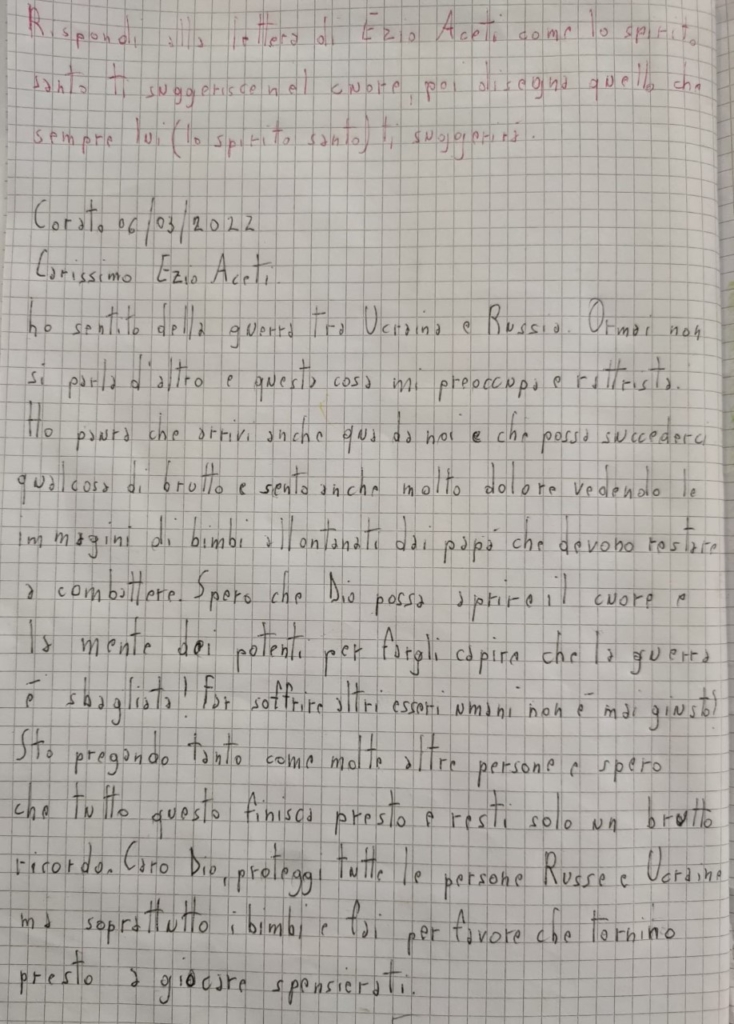 Rispondi alla lettera di Ezio Aceti come lo spirito
santo ti suggerisce nel cuore, poi disegna quello che
sempre lui (lo spirito santo) ti suggerirà.
Corato 06/03/2022
Carissimo Ezio Aceti
ho sentito della guerra tra Ucraina e Russia. Ormai non
si parla d'altro e questa cosa mi preoccupa e rattrista.
Ho paura che arrivi anche qua da noi e che possa succedere
qualcosa di brutto e sento anche molto dolore vedendo le
immagini di bimbi allontanati dai papà che devono restare
a combattere. Spero che Dio possa aprire il cuore e
la mente dei potenti per fargli capire che la guerra
è sbagliata! Far soffrire altri esseri umani non è mai giusto!
Sto pregando tanto come molte altre persone e spero
che tutto questo finisca presto e resti solo un brutto
ricordo. Caro Dio, proteggi tutte le persone Russe e Ucraine
ma soprattutto i bimbi e fai per favore che tornino
presto a giocare spensierati.